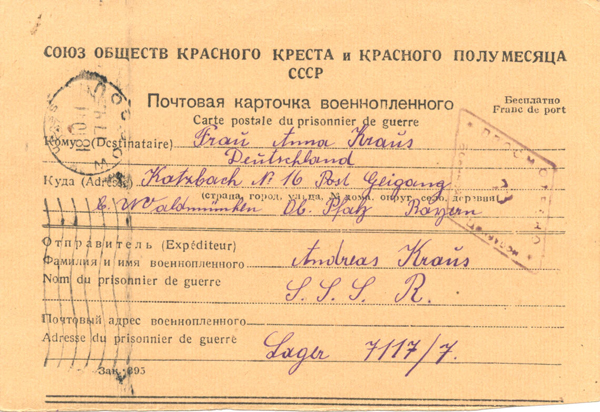 СОЮЗ ОБЩЕСТВ КРАСНОГО КРЕСТА и КРАСНОГО ПОЛУМЕСЯЦА
СССР
Почтовая карточка военнопленного
Carte postale du prisonnier de guerre
Бесплатно
Franc de port
Кому (Destinataire) Frau Anna Kraus
Deutschland
Куда (Adresse) Katzbach N 16 Post Geigang
(страна, город, улица, № дома, округ, село, деревня)
b. Waldmünchen Ob. Pfalz Bayern
Отправитель (Expéditeur)
Фамилия и имя военнопленного Andreas Kraus
Nom du prisonnier de guerre S. S. S. R.
Почтовый адрес военнопленного
Adresse du prisonnier de guerre Lager 7117/7.
Зак. 895
ПРОСМОТРЕНО